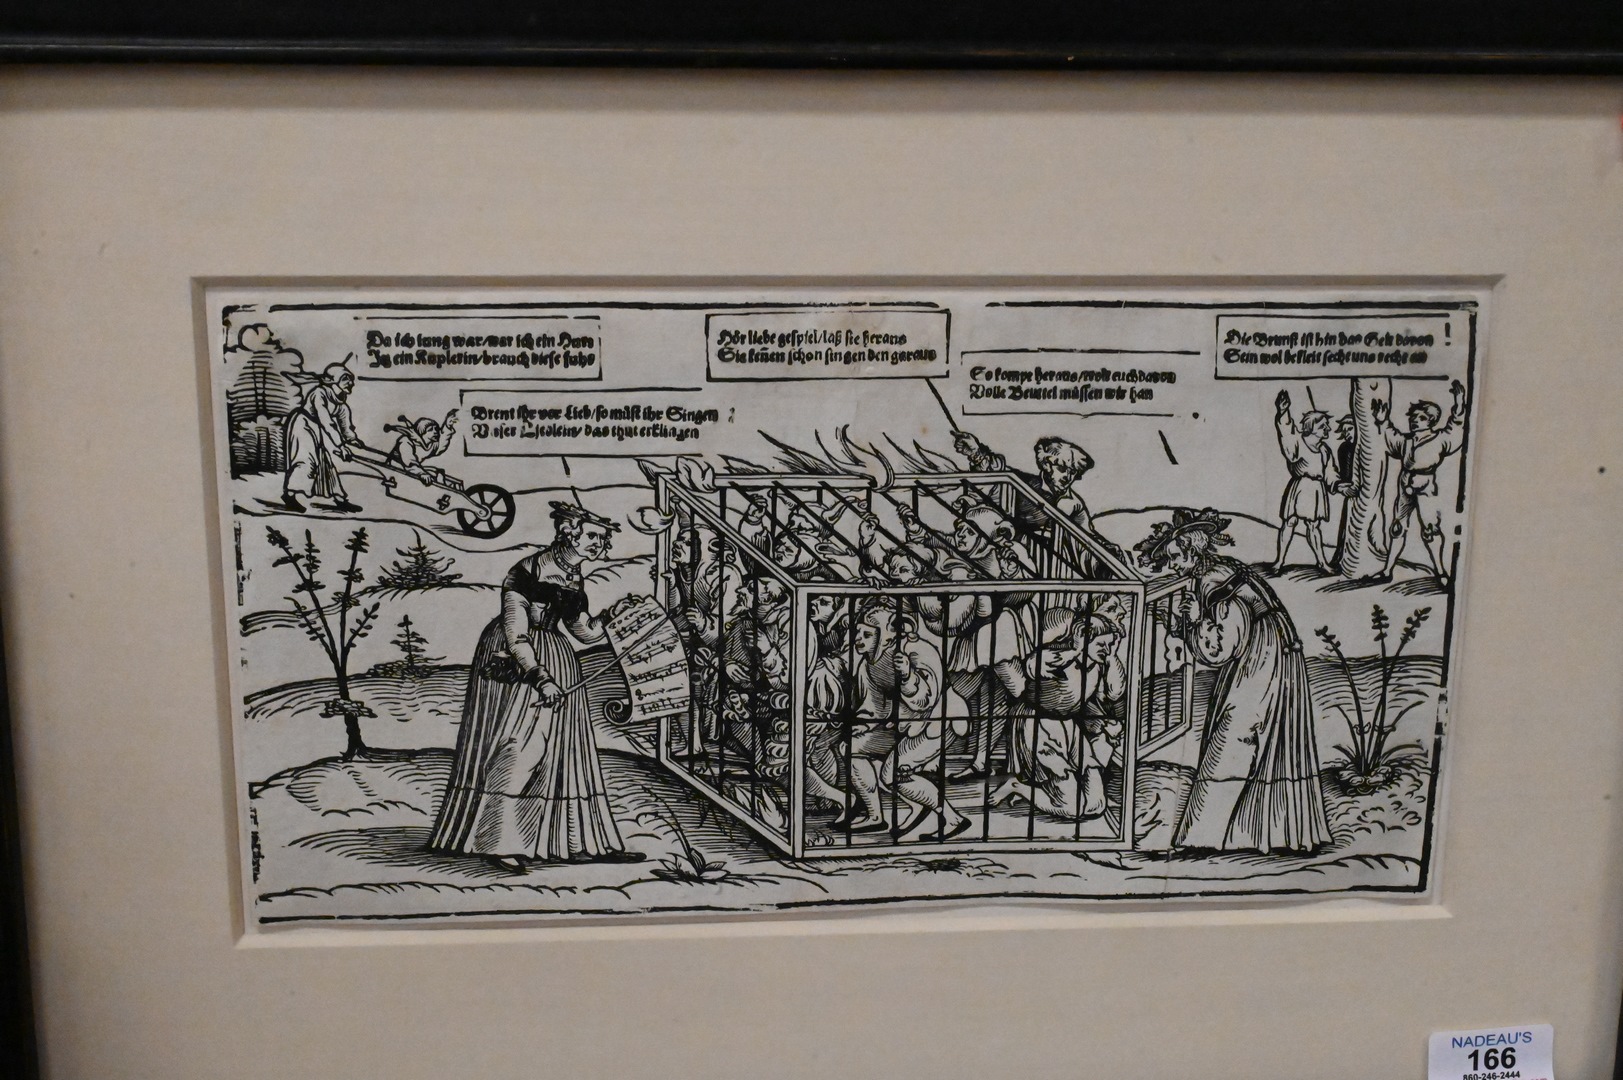 Da ich iung war/war ich ein Hur
Itz ein Kuplerin/brauch diese fuhr
Brent ihr vor Lieb/so müst ihr Singen
Unser Liedlein/das thut erklingen
Hör liebe gespiel/laß sie heraus
Sie keñen schon singen den garaus
So kompt heraus/wolt euch davon
Volle Beuttel müssen wir han
Die Brunst ist hin das Gelt davon
Sein wol bekleit secht uns recht an
NADEAU'S
166
860-246-2444